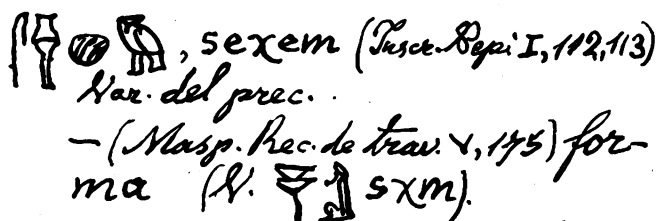 𓋴𓌂𓐍𓅓, seχem (Inscr. Pepi I, 112, 113)
Var. del prec.
— (Masp. Rec. de trav. V, 175) for-
ma (V. sχm).